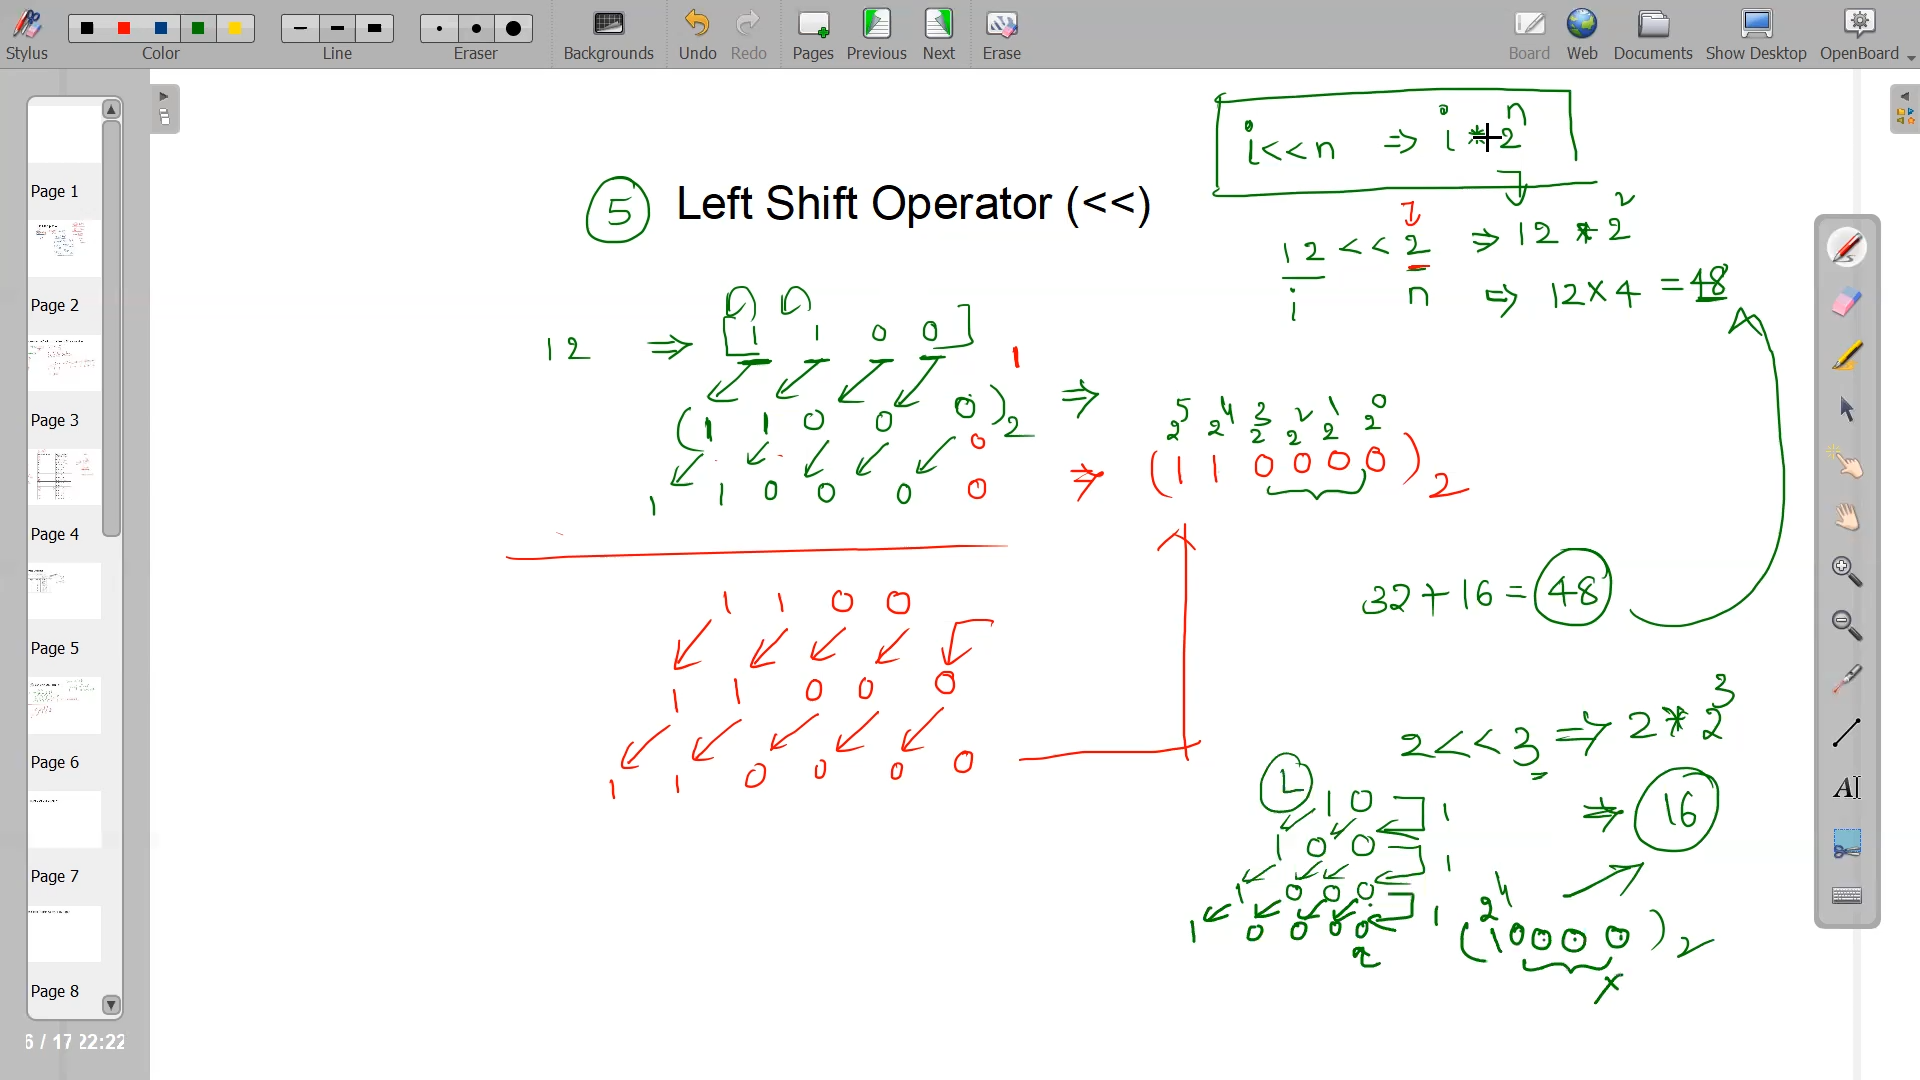 Stylus Color Line Eraser Backgrounds Undo Redo Pages Previous Next Erase Board Web Documents Show Desktop OpenBoard
Page 1
Page 2
Page 3
Page 4
Page 5
Page 6
Page 7
Page 8
6 / 17 22:22
i<<n ⇒ i * 2^n
5 Left Shift Operator (<<)
12 << 2 ⇒ 12 * 2^2
i n ⇒ 12 × 4 = 48
12 ⇒ [1 1 0 0] 1
(1 1 0 0 0)2 ⇒
0
1 1 0 0 0 0 ⇒
2^5 2^4 2^3 2^2 2^1 2^0
(1 1 0 0 0 0)2
1 1 0 0
1 1 0 0 0
1 1 0 0 0 0
32 + 16 = 48
2 << 3 ⇒ 2 * 2^3
⇒ 16
L 1 0 1
1 0 0 1
1 0 0 0 1
1 0 0 0 0
2^4
(1 0 0 0 0)2
x
AI